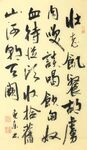 壯志飢餐胡虜
肉笑談渴飲匈奴
血待從頭收拾舊
山河朝天闕